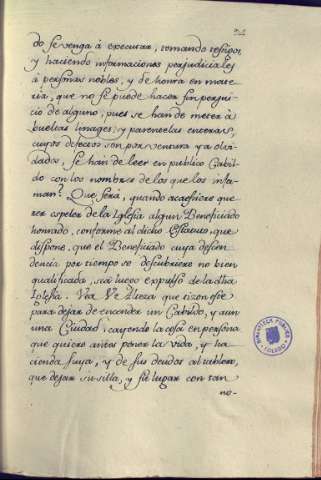 do se venga à executar, tomando testigos,
y haciendo informaciones perjudiciales
à personas nobles, y de honra en mate-
ria, que no se puede hacer sin perjui-
cio de alguno; pues se han de meter à
bueltas linages, y parentelas enteras,
cuyos defectos son por ventura ya olvi-
dados, se han de leer en publico Cabil-
do con los nombres de los que los infa-
man? Que será, quando acaesciere que-
rer espeler de la Iglesia algun Beneficiado
honrado, conforme al dicho Estatuto, que
dispone, que el Beneficiado cuya descen-
dencia por tiempo se descubriere no bien
qualificada, sea luego expulso de la dha
Iglesia. Vea Vᵉ Alteza que tison este
para dejar de encender un Cabildo, y aun
una Ciudad; cayendo la cosa en persona
que quiera antes poner la vida, y ha-
cienda suya, y de sus deudos al tablero,
que dejar su silla, y su lugar con tan
no-
BIBLIOTECA PUBLICA
TOLEDO